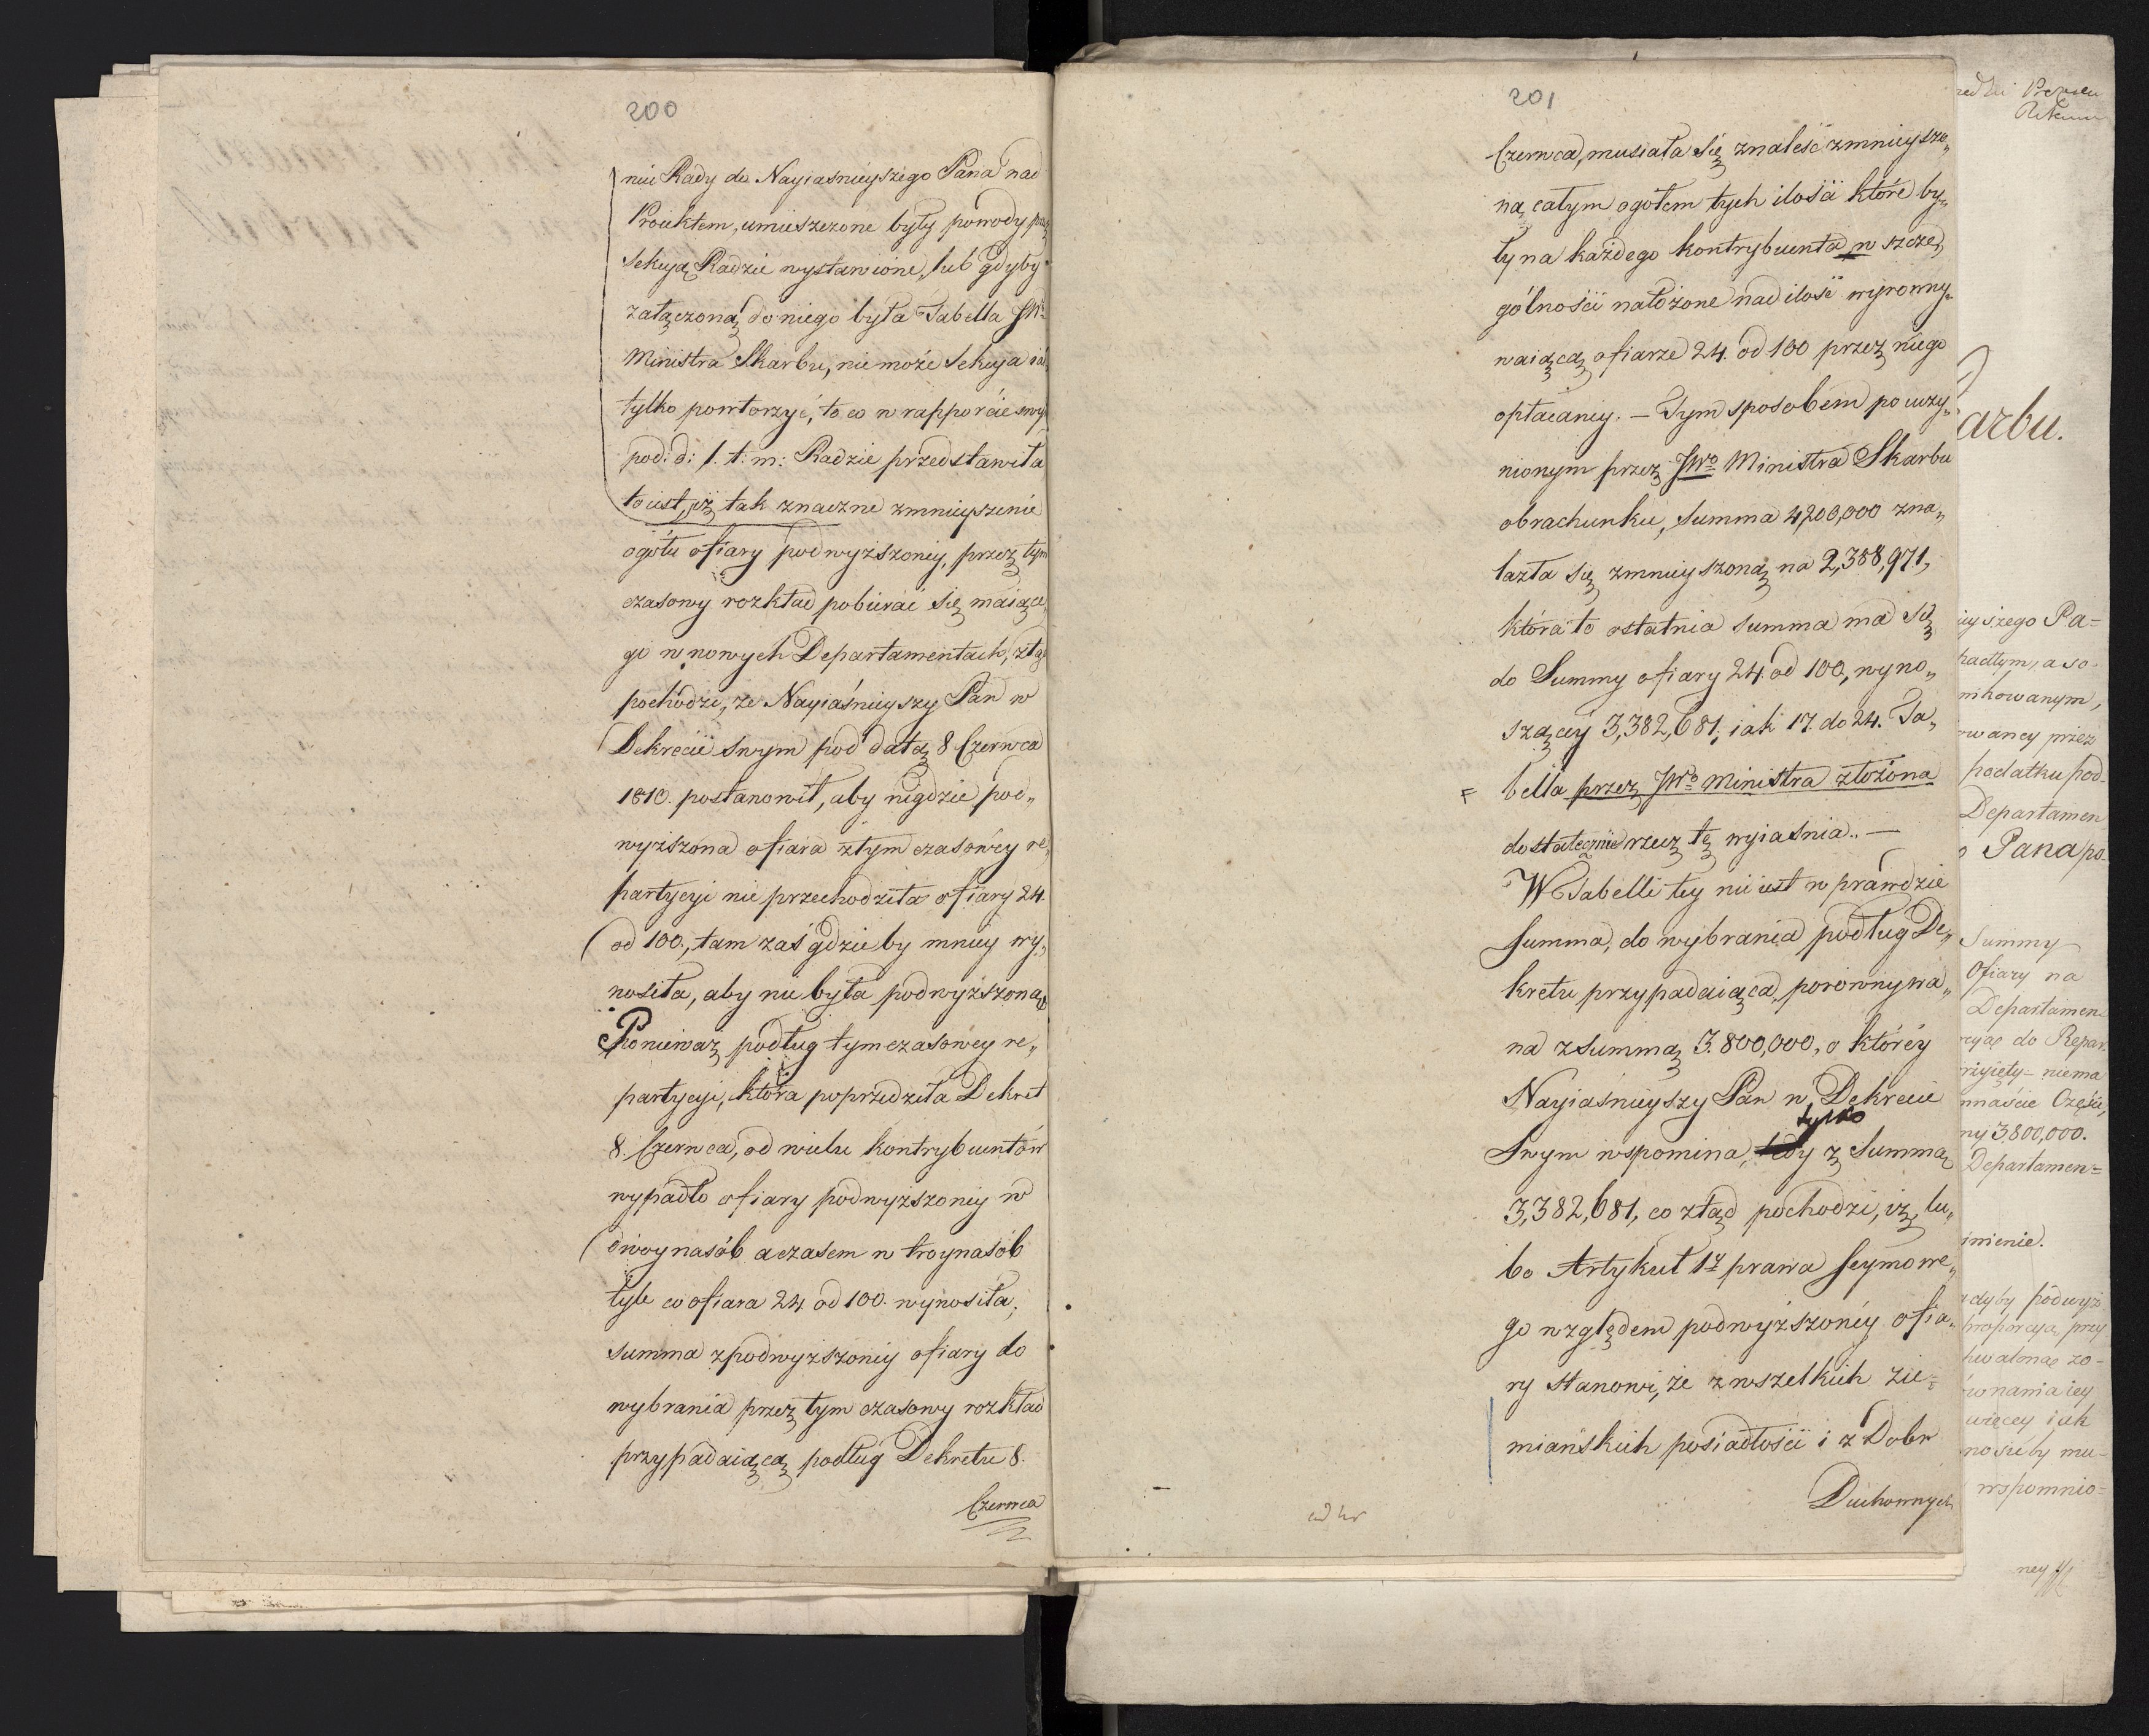 200
niu Rady do Nayiaśnieyszego Pana nad
Proiektem, umieszczone były powody przez
Sekcyą Radzie wystawione, lub gdyby
załączoną do niego była Tabella JWo
Ministra Skarbu, nie może Sekcya iak
tylko powtorzyć, to co w rapporcie swym
pod: d: 1. t: m: Radzie przedstawiła
to iest, iż tak znaczne zmnieyszenie
ogółu ofiary podwyższoney, przez tym
czasowy rozkład pobierać się maiące
go w nowych Departamentach, ztąd
pochodzi, że Nayiaśnieyszy Pan w
Dekrecie swym pod datą 8 Czerwca
1810. postanowił, aby nigdzie pod„
wyższona ofiara z tymczasowey re„
partycyi nie przechodziła ofiary 24.
od 100., tam zaś gdzieby mniey wy„
nosiła, aby nie była podwyższoną
Ponieważ podług tymczasowey re„
partycyi, która poprzedziła Dekret
8. Czerwca, od wielu kontrybuentów
wypadło ofiary podwyższoney w
dwoynasób a czasem w troynasób
tyle co ofiara 24 od 100. wynosiła,
summa z podwyższoney ofiary do
wybrania przez tym czasowy rozkład
przypadaiącą podług Dekretu 8.
Czerwca
201
Czerwca, musiała się znaleść zmnieyszo„
ną, całym ogółem tych ilości które by„
ły na każdego kontrybuenta w szcze„
gólności nałożone nad ilość wyrowny„
waiącą ofiarze 24. od 100 przez niego
opłacaney. – Tym sposobem po uczy„
nionym przez JWo Ministra Skarbu
obrachunku, Summa 4,200,000 zna„
lazła się zmnieyszoną na 2,388,971,
która to ostatnia summa ma się
do Summy ofiary 24. od 100, wyno„
szącey 3,382,681, iak 17. do 24. Ta„
bella przez JWo Ministra złożona
dostatecznie rzecz tę wyiaśnia. –
W Tabelli tey nie iest wprawdzie
Summa, do wybrania podług De„
kretu przypadaiąca, porownywa„
na z summą 3.800,000, o którey
Nayiaśnieyszy Pan w Dekrecie
tylko
Swym wspomina, z Summą
3,382,681, co ztąd pochodzi, iż lu„
bo Artykuł 1y prawa Seymowe„
go względem podwyższoney ofia„
ry stanowi, że z wszelkich zie=
miańskich posiadłości i z Dobr
Duchownych
arbu.
uyszego Pa=
padłym, a so-
nikowanym,
waney przez
podatku pod-
Departamen
Pana po-
Summy
Ofiary na
Departamen
do Repar
przyięty – niema
naście Części,
ny 3,800,000.
Departamen=
inienie.
gdyby podwyż
proporcyą przy
hwaloną zo-
ównania iey
więcey iak
nosiłeby mu-
wspomnio=
ney